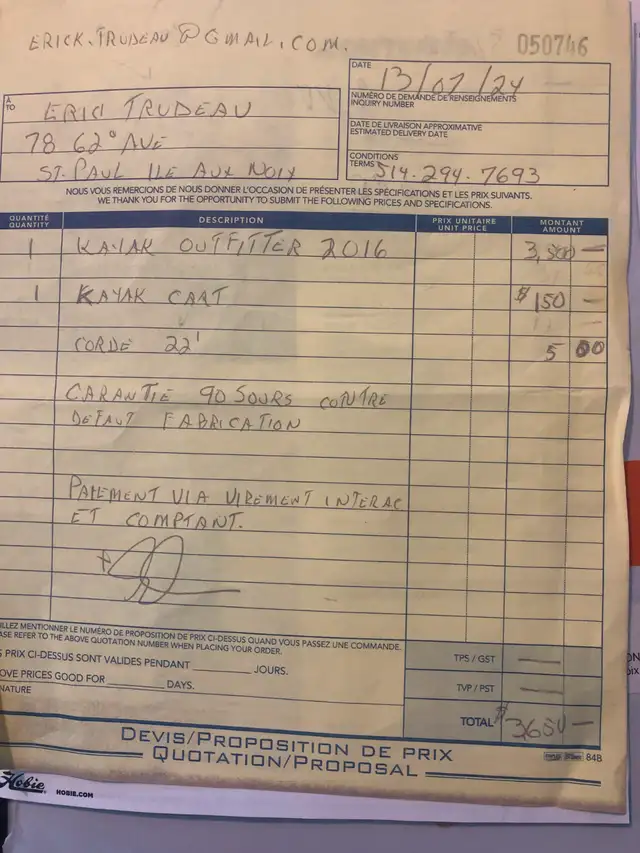 ERICK.TRUDEAU@GMAIL.COM.
050746
DATE
13/07/24
À
TO
ERIC TRUDEAU
78 62° AVE
ST-PAUL ILE AUX NOIX
NUMÉRO DE DEMANDE DE RENSEIGNEMENTS
INQUIRY NUMBER
DATE DE LIVRAISON APPROXIMATIVE
ESTIMATED DELIVERY DATE
CONDITIONS
TERMS 514.294.7693
NOUS VOUS REMERCIONS DE NOUS DONNER L'OCCASION DE PRÉSENTER LES SPÉCIFICATIONS ET LES PRIX SUIVANTS.
WE THANK YOU FOR THE OPPORTUNITY TO SUBMIT THE FOLLOWING PRICES AND SPECIFICATIONS.
QUANTITÉ DESCRIPTION PRIX UNITAIRE MONTANT
QUANTITY UNIT PRICE AMOUNT
1 KAYAK OUTFITTER 2016 3,500 —
1 KAYAK CART $150 —
CORDE 22' 5 00
GARANTIE 90 JOURS CONTRE
DEFAUT FABRICATION
PAIEMENT VIA VIREMENT INTERAC
ET COMPTANT.
ILLEZ MENTIONNER LE NUMÉRO DE PROPOSITION DE PRIX CI-DESSUS QUAND VOUS PASSEZ UNE COMMANDE.
ASE REFER TO THE ABOVE QUOTATION NUMBER WHEN PLACING YOUR ORDER.
S PRIX CI-DESSUS SONT VALIDES PENDANT ________ JOURS.
OVE PRICES GOOD FOR ________ DAYS.
NATURE
TPS / GST —
TVP / PST —
TOTAL $3650 —
DEVIS/PROPOSITION DE PRIX
QUOTATION/PROPOSAL
84B
Hobie
HOBIE.COM